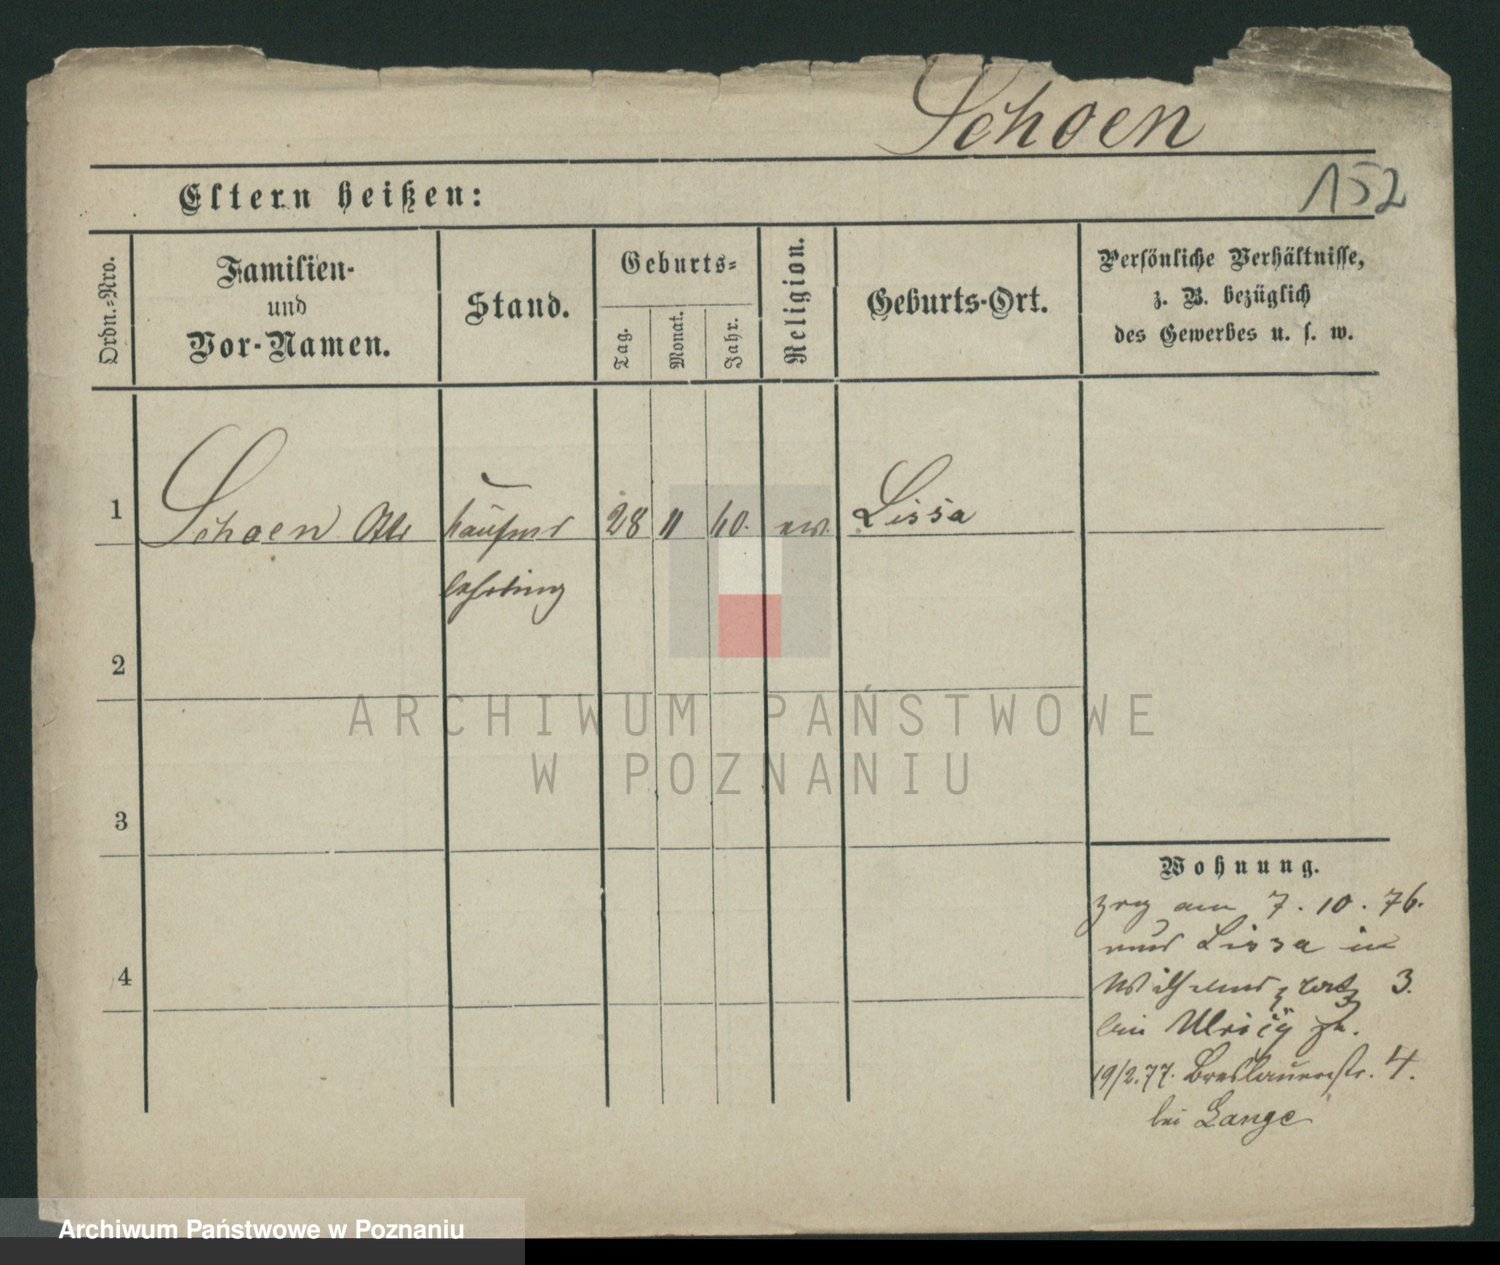 Schoen
152
Eltern heißen:
Ordn.-Nro.
Familien-
und
Vor-Namen.
Stand.
Geburts-
Tag.
Monat.
Jahr.
Religion.
Geburts-Ort.
Persönliche Verhältnisse,
z. B. bezüglich
des Gewerbes u. s. w.
1 Schoen 28 11 60. ev. Lissa
lehrling
2
3
4
Wohnung.
am 7. 10. 76.
Lissa in
3.
bei
19/2.77. Breslauerstr. 4.
bei Lange
ARCHIWUM PAŃSTWOWE
W POZNANIU
Archiwum Państwowe w Poznaniu